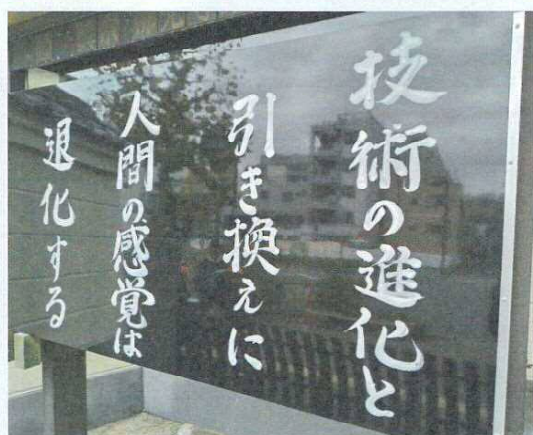 技術の進化と
引き換えに
人間の感覚は
退化する